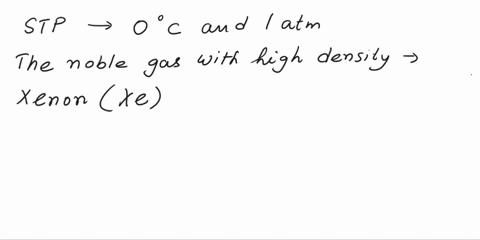 STP → 0°C and 1 atm
The noble gas with high density →
Xenon (Xe)